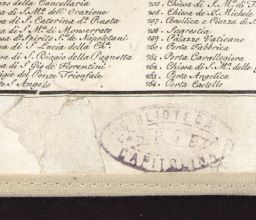 zzo della Cancellaria
sa di S. Mª. dell' Orazione
sa di S. Caterina dª. Ruota
sa di S. Mª. di Monserrato
sa dª. Spirito Sº. de Napoletani
sa di S. Lucia della Chª.
sa di S. Biagio della Pagnotta
sa di S. Gio de Fiorentini
igie del Ponte Trionfale
te S. Angelo
255. Chiesa di S. Mª. di T
256. Chiesa de S. Michele
257. Basilica e Piazza di S
258. Sagrestia
259. Palazzo Vaticano
260. Porta Fabbrica
261. Porta Cavallegiera
262. Chiesa di S. Mª. delle
263. Porta Angelica
264. Porta Castello
BIBLIOTECA
CAPITOLINA